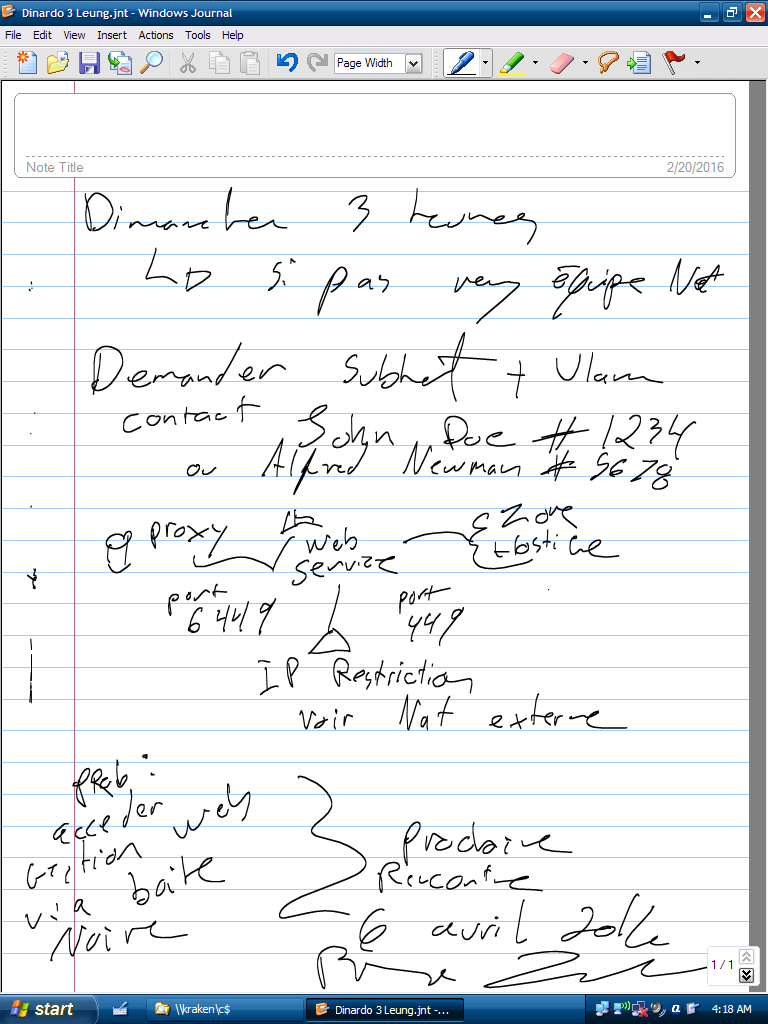 Dinardo 3 Leung.jnt - Windows Journal
File Edit View Insert Actions Tools Help
Page Width
Note Title 2/20/2016
3
si pas équipe Net
Demander + Ulam
contact John Doe # 1234
ou Alfred Newman # 5678
proxy web service Zone
port 6449 port 449
IP Restriction
voir Nat externe
prob :
acceder web
via boite
Noire
Rencontre
6 avril 2016
1 / 1
start \\kraken\c$ Dinardo 3 Leung.jnt -... 4:18 AM